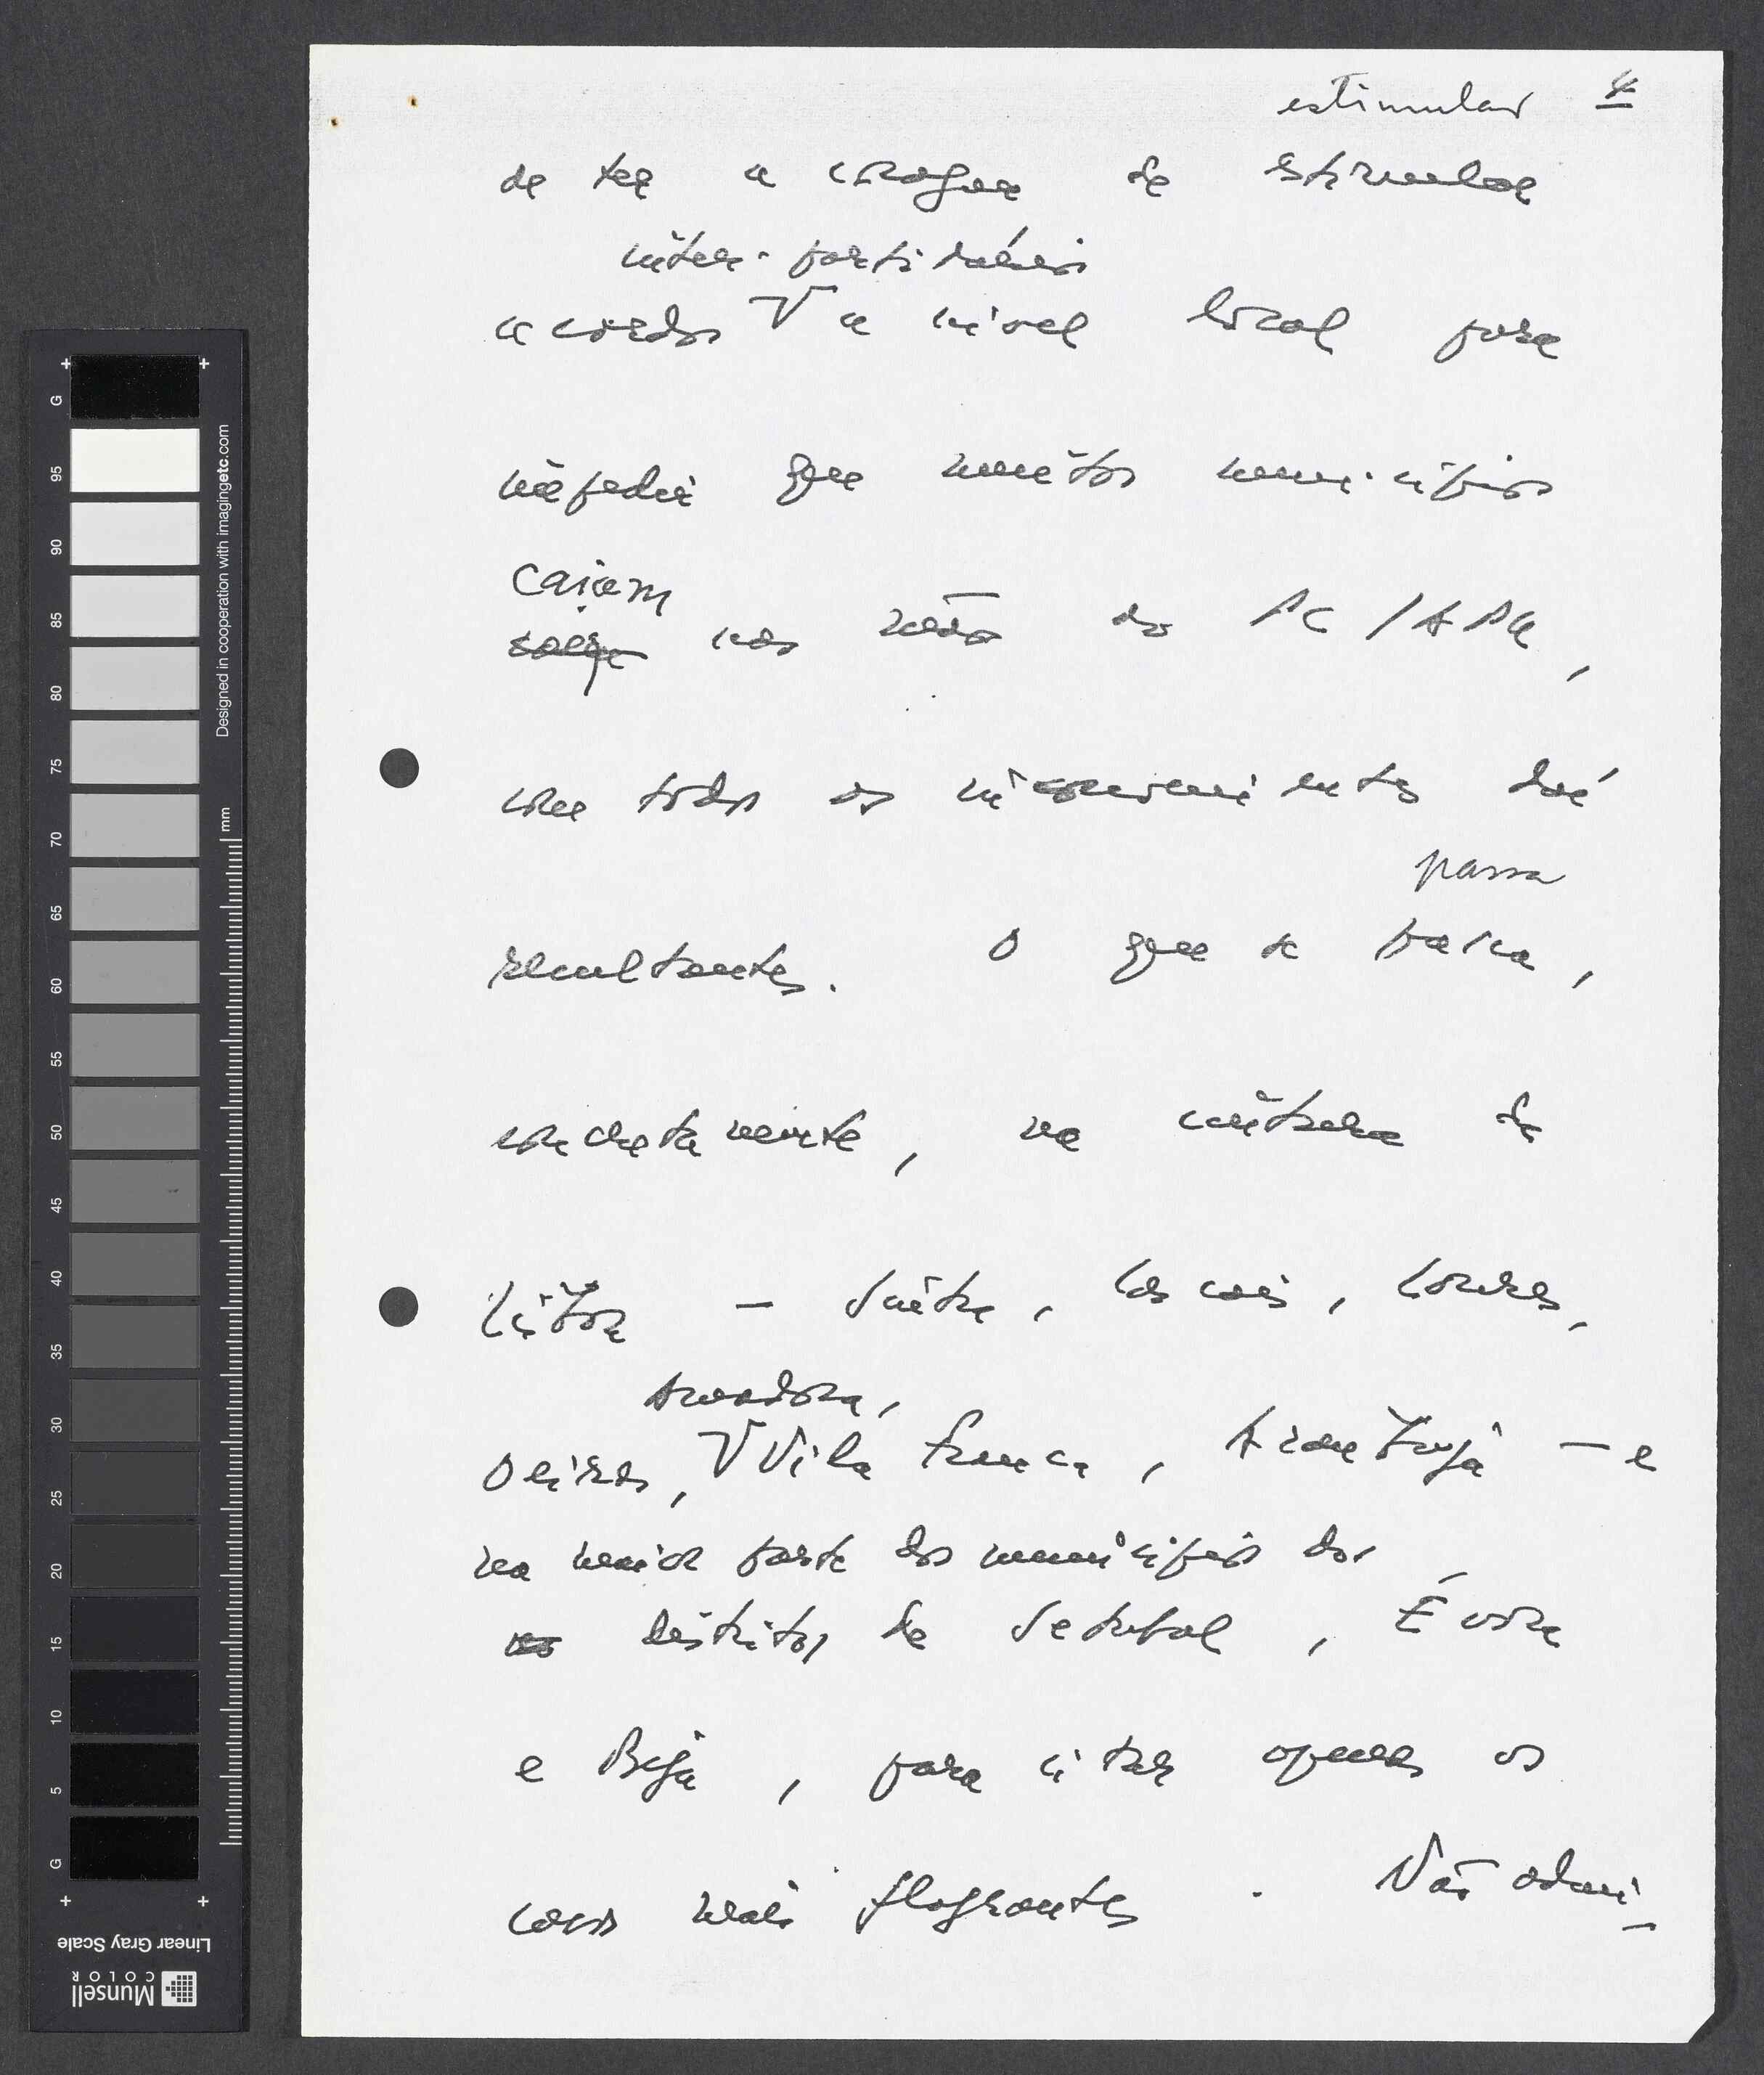 estimular 4
de ter a coragem de estimular
inter-partidários
acordos V a nível local para
impedir que muitos municípios
caiam
caiam nas mãos do PC/APU,
com todos os inconvenientes daí
passa
resultantes. O que se passa,
concretamente, na cintura de
Lisboa – Sintra, Cascais, Loures,
Amadora,
Oeiras, V Vila Franca, Azambuja – e
na maior parte dos municípios dos
nos distritos de Setúbal, Évora
e Beja, para citar apenas os
casos mais flagrantes. Não admi-
G
95
90
85
80
75
70
65
60
55
50
45
40
35
30
25
20
15
10
5
G
Designed in cooperation with imagingetc.com
mm
Linear Gray Scale
Munsell
COLOR